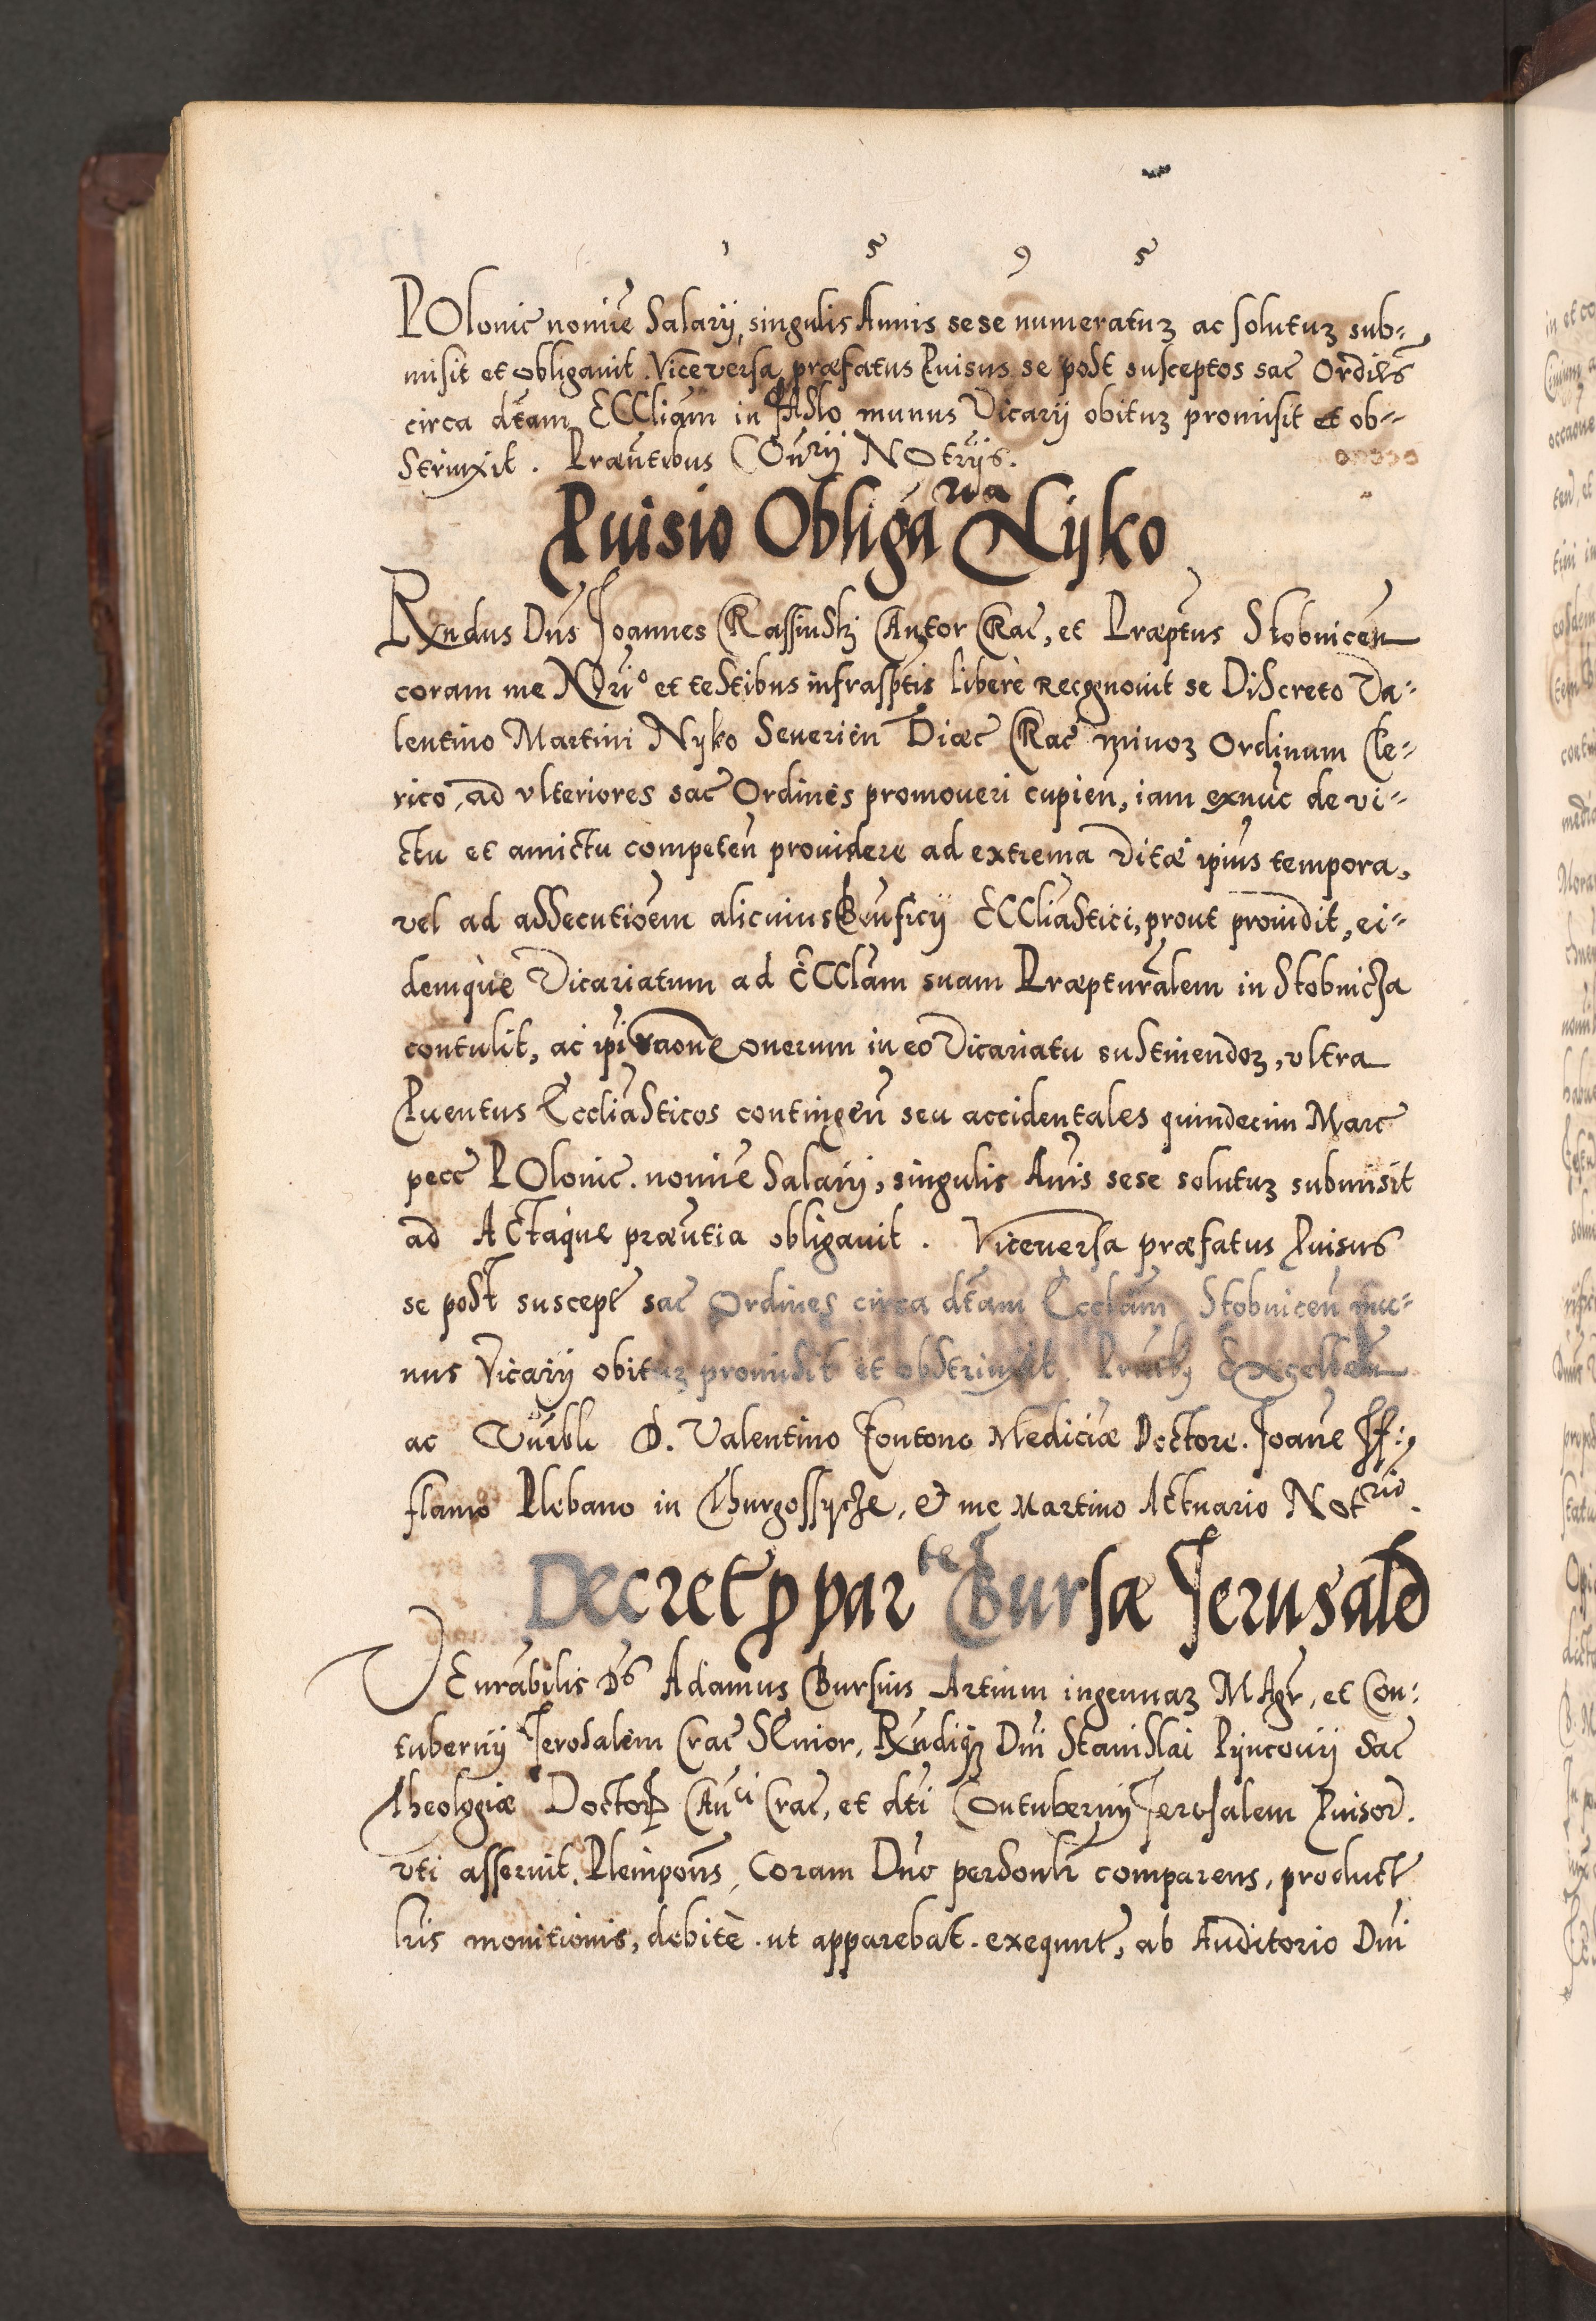 1 5 9 5
POlonic nomīe Salarij, singulis Annis sese numeraturꝫ ac soluturꝫ sub=
misit et obligavit. Viceversa præfatus Puisus se post susceptos sac Ordīes
circa dtam ECCliam in munus Vicarij obiturꝫ promisit et ob=
strinxit. Præntibus COnrij NOtrijs.
Puisio Obligaria Nyko
Rxndus Dns Joannes Rassinskj Cantor Crac, et Præptus Stobnicen
coram me NOrio et testibus infrasptis liberè recognovit se Discreto Va=
lentino Martini Nyko Severien Diæc Crac minoꝝ Ordinum Cle=
rico, ad vlteriores sac Ordines promoveri cupien, iam exnūc de vi=
ctu et amictu competen providere ad extrema Vitæ ipius tempora,
vel ad assecutioem alicuius Benficij ECCliastici, prout providit, ei=
demque Vicariatum ad ECClam suam Præpturalem in Stobnicza
contulit, ac ipi raone onerum in eo Vicariatu sustinendoꝝ, vltra
Puentus Eccliasticos contingen seu accidentales quindecim Marc
pecc POlonic. nomīe Salarij, singulis Anis sese soluturꝫ submisit
ad ACtaque præntia obligavit. Viceversa præfatus Puisus
se post suscept sac Ordines circa dtam Ecclam Stobnicen mu=
nus Vicarij obiturꝫ promisit et obstrinxit. Prntibꝫ Excellen
ac Vnrbli D. Valentino Fontono Mediciæ Doctore. Joane
flamo Plebano in Thurgossycze, et me Martino Actuario Notrio.
Decret p parte Bursæ Jerusale
VEnrabilis Ds Adamus Bursius Artium ingenuaꝝ MAgr, et Con=
tubernij Jerosalem Crac SEnior, Rxndiqꝫ Dni Stanislai Pijncovij Sac
Theologiæ Doctor Canci Crac, et dti Contubernij Jerosalem Puisor.
vti asseruit. Plenipotns, Coram Dno personlr comparens, product
lris monitionis, debitè. ut apparebat. exequut, ab Auditorio Dni